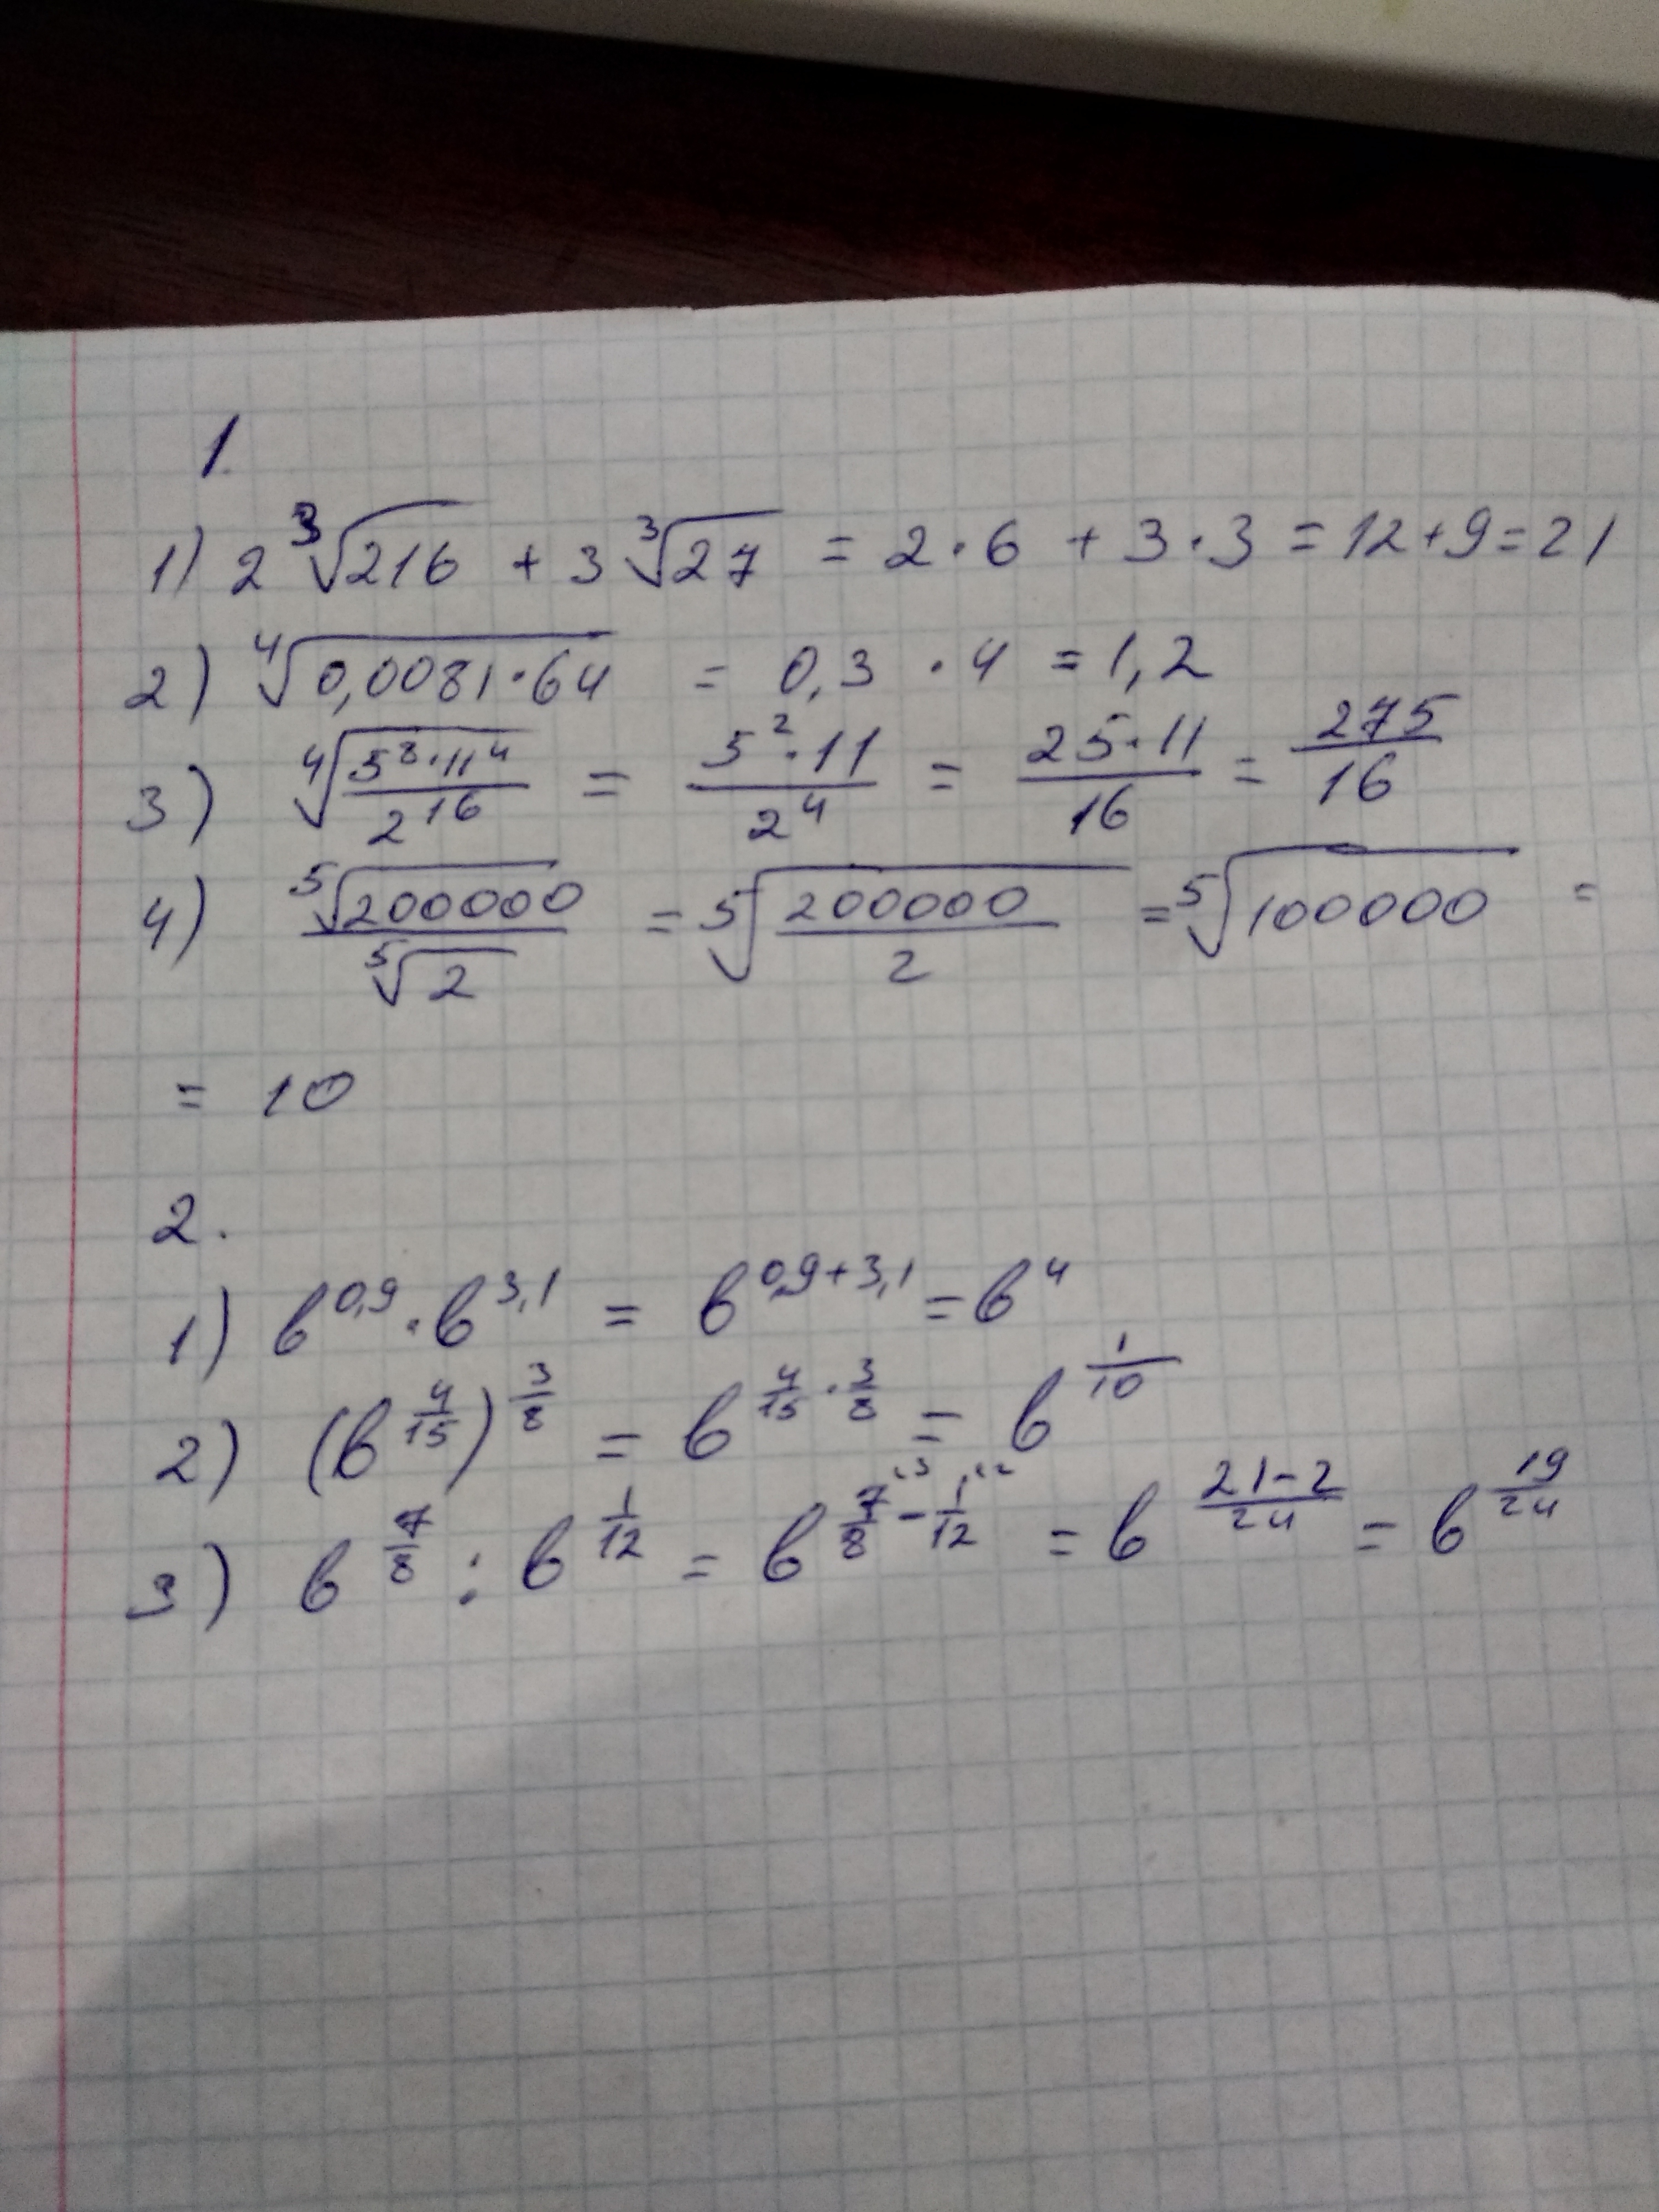 1.
1) 2∛216 + 3∛27 = 2·6 + 3·3 = 12+9=21
2) ∜(0,0081·64) = 0,3 · 4 = 1,2
3) ∜(5⁸·11⁴/2¹⁶) = 5²·11/2⁴ = 25·11/16 = 275/16
4) ⁵√200000/⁵√2 = ⁵√(200000/2) = ⁵√100000 =
= 10
2.
1) b^0,9 · b^3,1 = b^(0,9+3,1) = b^4
2) (b^(4/15))^(3/8) = b^(4/15 · 3/8) = b^(1/10)
3) b^(7/8) : b^(1/12) = b^(7/8 ˡ³ − 1/12 ˡ²) = b^((21-2)/24) = b^(19/24)